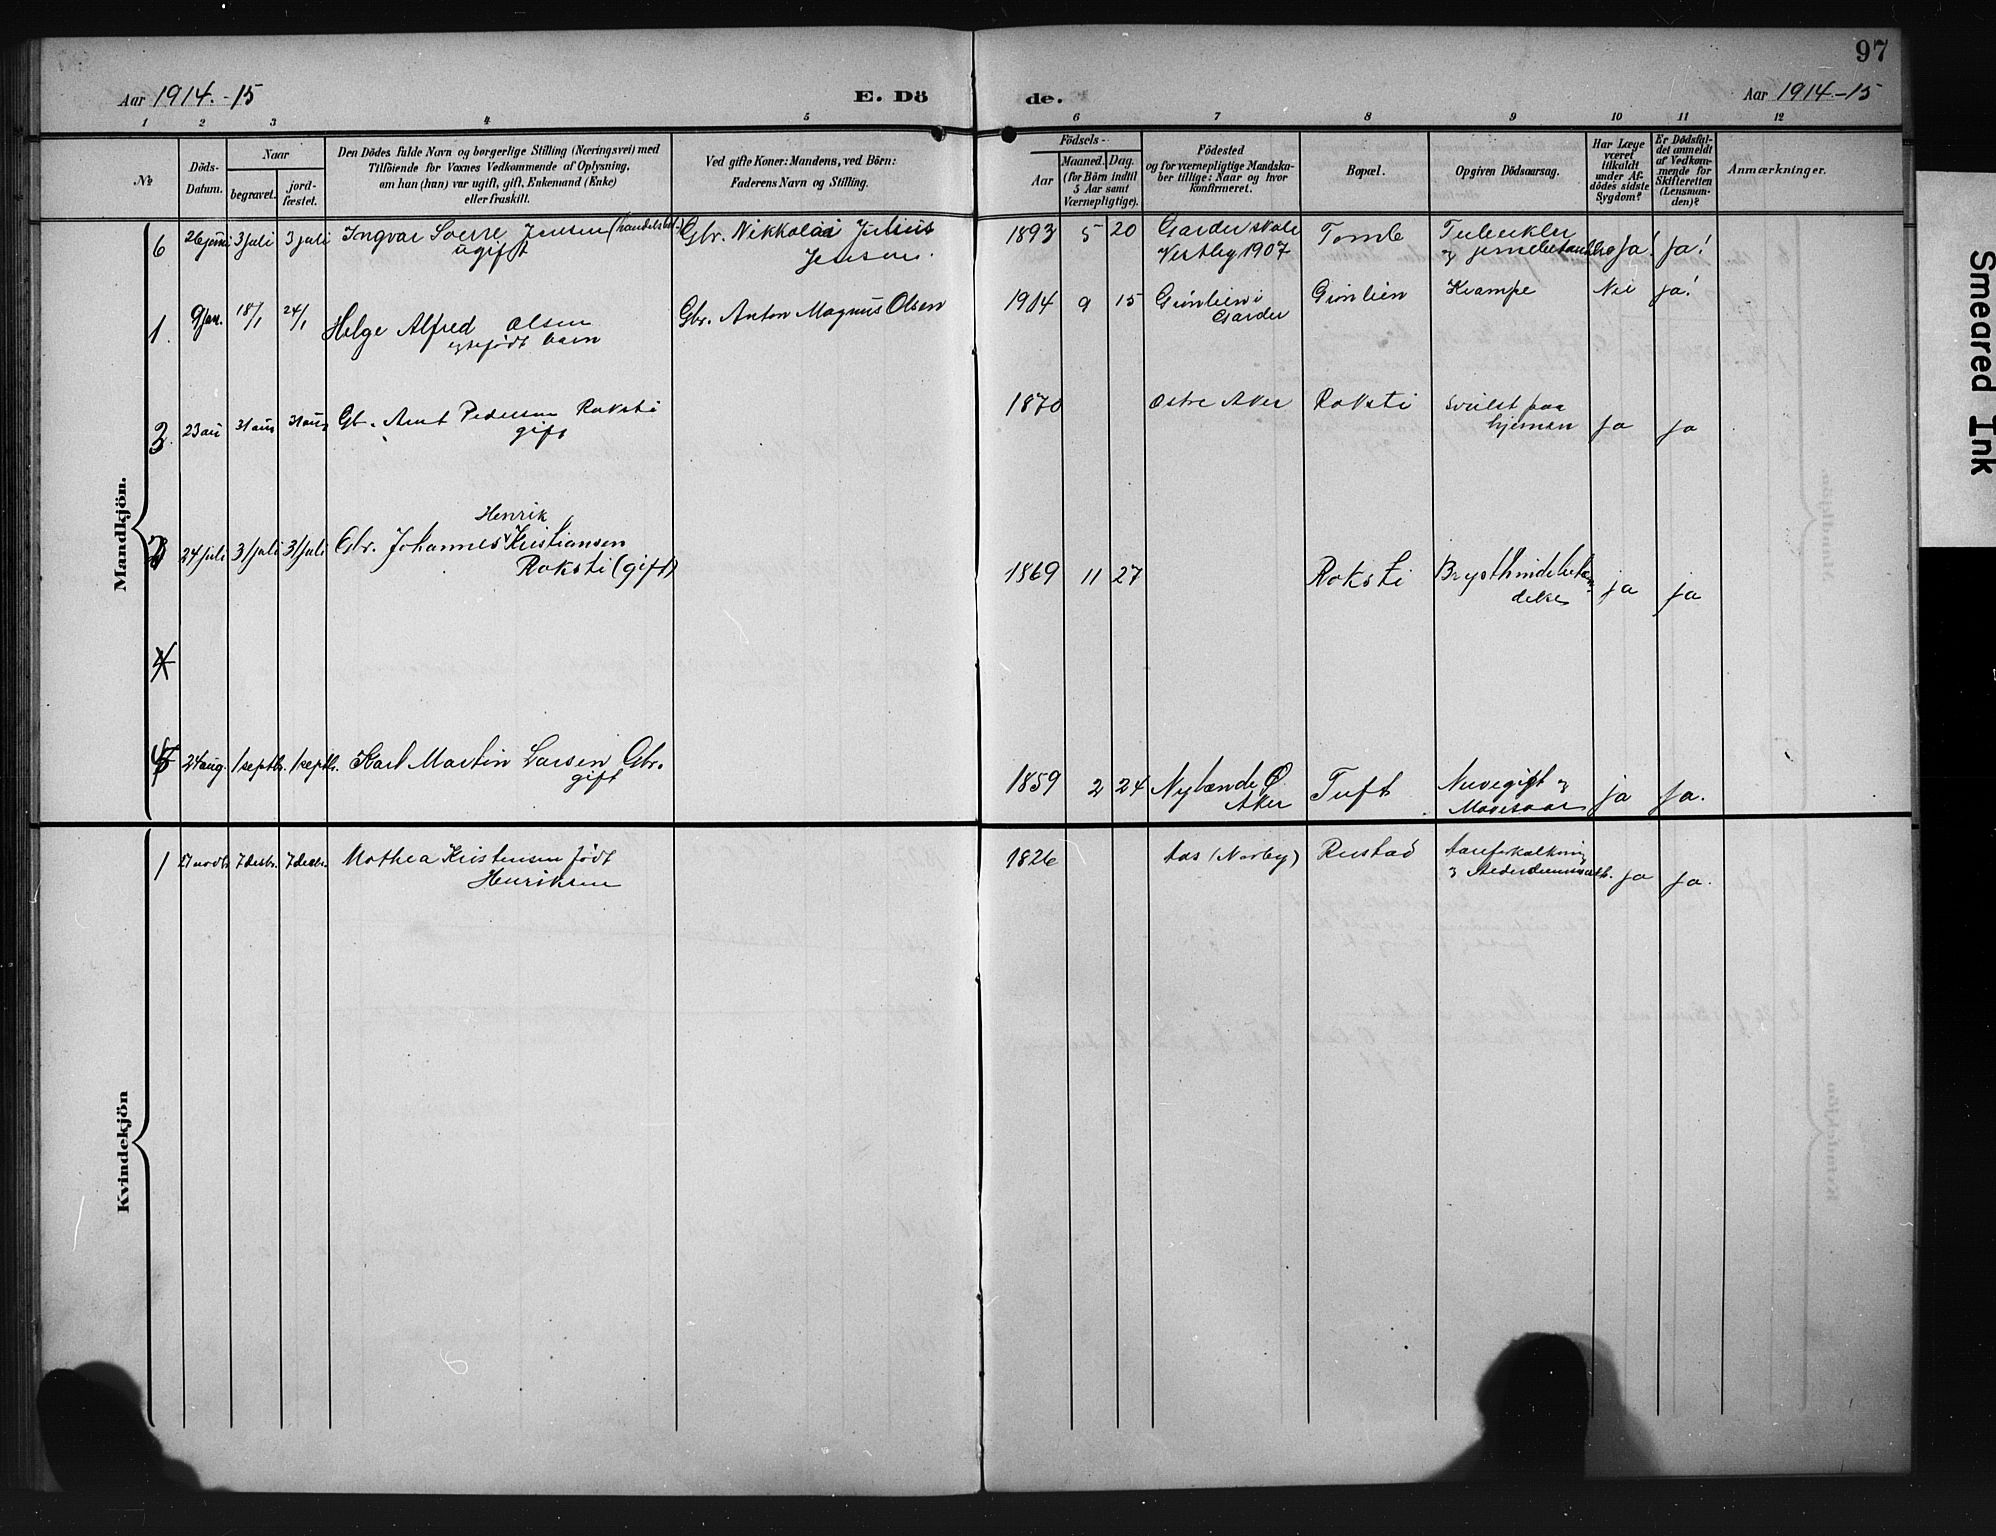 97
Aar 1914.-15
E. Dö
de.
Aar 1914-15
1 2 3 4 5 6 7 8 9 10 11 12
№
Döds-
Datum.
Naar
begravet.
jord-
fæstet.
Den Dödes fulde Navn og borgerlige Stilling (Næringsvei) med
Tilföiende for Voxnes Vedkommende af Oplysning,
om han (hun) var ugift, gift, Enkemand (Enke)
eller fraskilt.
Ved gifte Koner: Mandens, ved Börn:
Faderens Navn og Stilling.
Födsels-
Aar
Maaned. Dag.
(for Börn indtil
5 Aar samt
Værnepligtige).
Födested
og for værnepligtige Mandska-
ber tillige: Naar og hvor
konfirmeret.
Bopæl.
Opgiven Dödsaarsag.
Har Læge
været
tilkaldt
under Af-
dödes sidste
Sygdom?
Er Dödsfal-
det anmeldt
af Vedkom-
mende for
Skifteretten
(Lensman-
den)?
Anmærkninger.
Mandkjön.
6 26 juni 3 juli 3 juli Ingvar Sverre Jensen
ugift
Gbr. Nikkolai Julius
Jensen.
1893 5 20 Garder skole
Vestby 1907
Tomle
Tuberkler
Ja! Ja!
1. 9 jan. 18/1 24/1 Helge Alfred Olsen
egtefødt barn
Gbr. Anton Magnus Olsen
1914 9 15 Grønlien i
Garder
Grønlien Krampe Nei ja!
2. 23 au 31 aug 31 aug Gb. Arnt Pedersen Roksti
gift
1870 Østre Aker Roksti Svulst paa
hjernen ja ja
3 24 juli 31 juli 31 juli Gbr. Johannes Kristiansen
Henrik
Roksti (gift)
1869 11 27 Roksti Brysthindebetæn-
delse ja ja
4
24 aug. 1 septb. 1 septb. Karl Martin Larsen Gbr.
gift
1859 2 24 Nylænde Ø.
Aker
Tuft
Mavesaar ja ja.
Kvindekjön
1 27 novb. 7 desbr. 7 desbr. Mathea Kristensen født
Henriksen
1826 Aas (Norby) Rustad Aareforkalkning
ja ja.
6
Smeared Ink